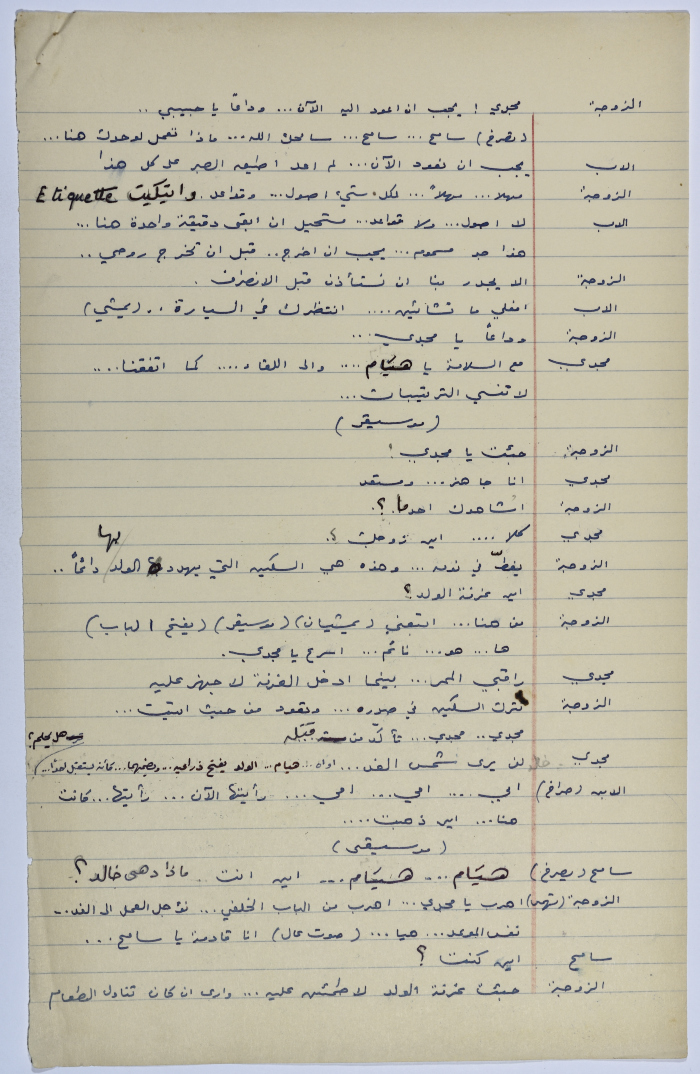 الزوجة مجدي ! يجب ان اعود اليه الآن ... وداعاً يا حبيبي ..
( يصرخ ) سامح ... سامح ... سامحك الله ... ماذا تعمل لوحدك هنا ...
الاب يجب ان نعود الآن ... لم اعد اطيق الصبر على كل هذا
الزوجة مهلاً ... مهلاً ... لكل شيء اصول ... وقواعد . واتيكيت Etiquette
الاب لا اصول ... ولا قواعد ... مستحيل ان ابقى دقيقة واحدة هنا ...
هذا جو مسموم ... يجب ان اخرج .. قبل ان تخرج روحي ..
الزوجة الا يجدر بنا ان نستأذن قبل الانصراف .
الاب افعلي ما تشائين .... انتظرك في السيارة .. ( يمشي )
الزوجة وداعاً يا مجدي ...
مجدي مع السلامة يا هيام .... والى اللقاء .... كما اتفقنا .....
لا تنسي الترتيبات ...
( موسيقى )
الزوجة جئت يا مجدي !
مجدي انا جاهز ... ومستعد
الزوجة اشاهدك احد ما . ؟
مجدي كلا .... اين زوجك ؟.
الزوجة يغطّ في نومه ... وهذه هي السكين التي يهدد بها الولد دائماً ..
مجدي اين غرفة الولد ؟
الزوجة من هنا ... اتبعني ( يمشيان ) ( موسيقى ) ( يفتح الباب )
ها ... هو ... نائم ... اسرع يا مجدي .
مجدي راقبي الممر ... بينما ادخل الغرفة لاجهز عليه
الزوجة تترك السكين في صدره ... وتعود من حيث اتيت ...
مجدي .. مجدي ... تأكّد من قبله
مجدي لن يرى شمس الغد ... اواه ... هيام ... الولد يفتح ذراعيه ... ويضمهما ... كأنه يستقبل احداً ... هل يحلم ؟
الابن ( صراخ ) امي .... امي ... امي ... رأيتها الآن ... رأيتها ... كانت
هنا ... اين ذهبت ....
( موسيقى )
سامح ( يصرخ ) هيام ... هيام ... اين انت .. ماذا دهى خالد ؟
الزوجة ( تهمس ) اهرب يا مجدي ... اهرب من الباب الخلفي ... نؤجل العمل الى الغد ...
نفس الموعد ... هيا ... ( صوت عال ) انا قادمة يا سامح ...
سامح اين كنت ؟
الزوجة جئت غرفة الولد لاطمئن عليه ... وارى ان كان تناول الطعام